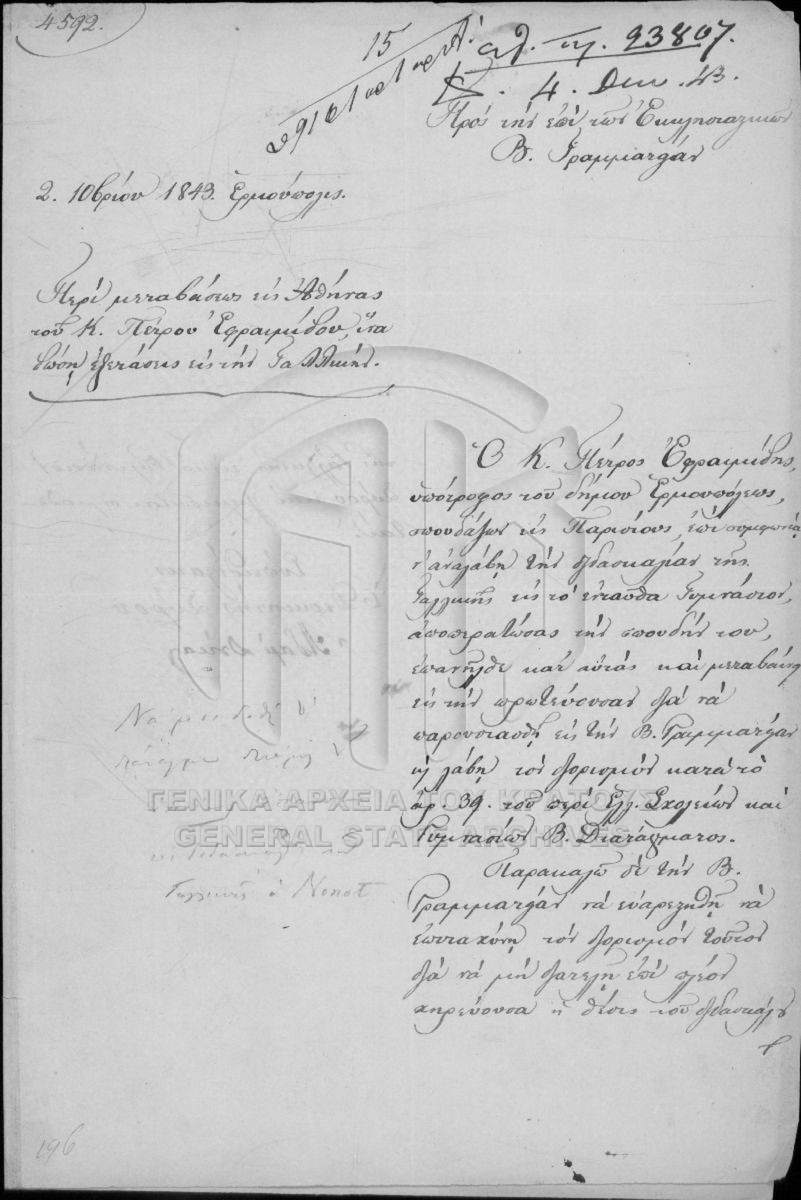 4592.
15
αθ. π. 23807.
4. Δεκ. 43.
Πρὸς τὴν ἐπὶ τῶν Ἐκκλησιαστικῶν
Β. Γραμματείαν
2. 10βρίου 1843. Ἑρμούπολις.
Περὶ μεταβάσεως εἰς Ἀθήνας
τοῦ Κ. Πέτρου Ἐφραιμίδου, ἵνα
δώσῃ ἐξετάσεις εἰς τὴν Γαλλικήν.
Ὁ Κ. Πέτρος Ἐφραιμίδης,
ὑπότροφος τοῦ δήμου Ἑρμουπόλεως,
σπουδάζων εἰς Παρισίους, ἐπὶ συμφωνίᾳ
ν' ἀναλάβῃ τὴν διδασκαλίαν τῆς
Γαλλικῆς εἰς τὸ ἐνταῦθα Γυμνάσιον,
ἀποπερατώσας τὴν σπουδήν του,
ἐπανῆλθε κατ' αὐτὰς καὶ μεταβαίνει
εἰς τὴν πρωτεύουσαν διὰ νὰ
παρουσιασθῇ εἰς τὴν Β. Γραμματείαν
κỳ λάβῃ τὸν διορισμὸν κατὰ τὸ
ἄρ. 39. τοῦ περὶ Ἑλ. Σχολείων καὶ
Γυμνασίων Β. Διατάγματος.
Παρακαλῶ δὲ τὴν Β.
Γραμματείαν νὰ εὐαρεστηθῇ νὰ
ἐπιταχύνῃ τὸν διορισμὸν τοῦτον
διὰ νὰ μὴ διατελῇ ἐπὶ πλέον
χηρεύουσα ἡ θέσις τοῦ διδασκάλου
Γαλλικῆς ὁ
ΓΕΝΙΚΑ ΑΡΧΕΙΑ ΤΟΥ ΚΡΑΤΟΥΣ
GENERAL STATE ARCHIVES
196